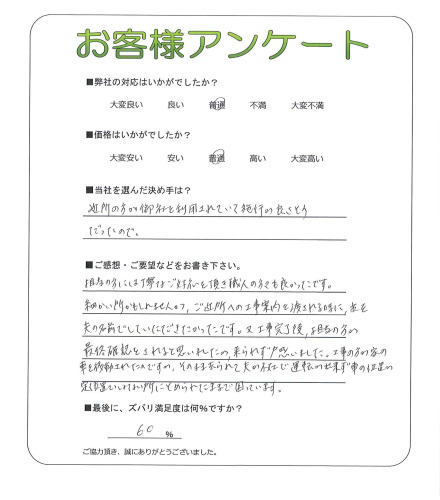 お客様アンケート
■弊社の対応はいかがでしたか？
大変良い 良い 普通 不満 大変不満
■価格はいかがでしたか？
大変安い 安い 普通 高い 大変高い
■当社を選んだ決め手は？
近所の方が御社を利用されていて施行の良さそう
だったので。
■ご感想・ご要望などをお書き下さい。
担当の方には丁寧なご対応を頂き職人の方々も良かったです。
細かい所かもしれませんが、ご近所への工事案内を渡される時に、
夫の名前でしていただきたかったです。又工事完了後、担当の方が
最終確認をされると思いましたが、来られず 思いました。工事の方が家の
車を移動されたのですが、そのまま帰られて夫が不在で運転が出来ず車の
所にとめられたままで困っています。
■最後に、ズバリ満足度は何％ですか？
60 ％
ご協力頂き、誠にありがとうございました。